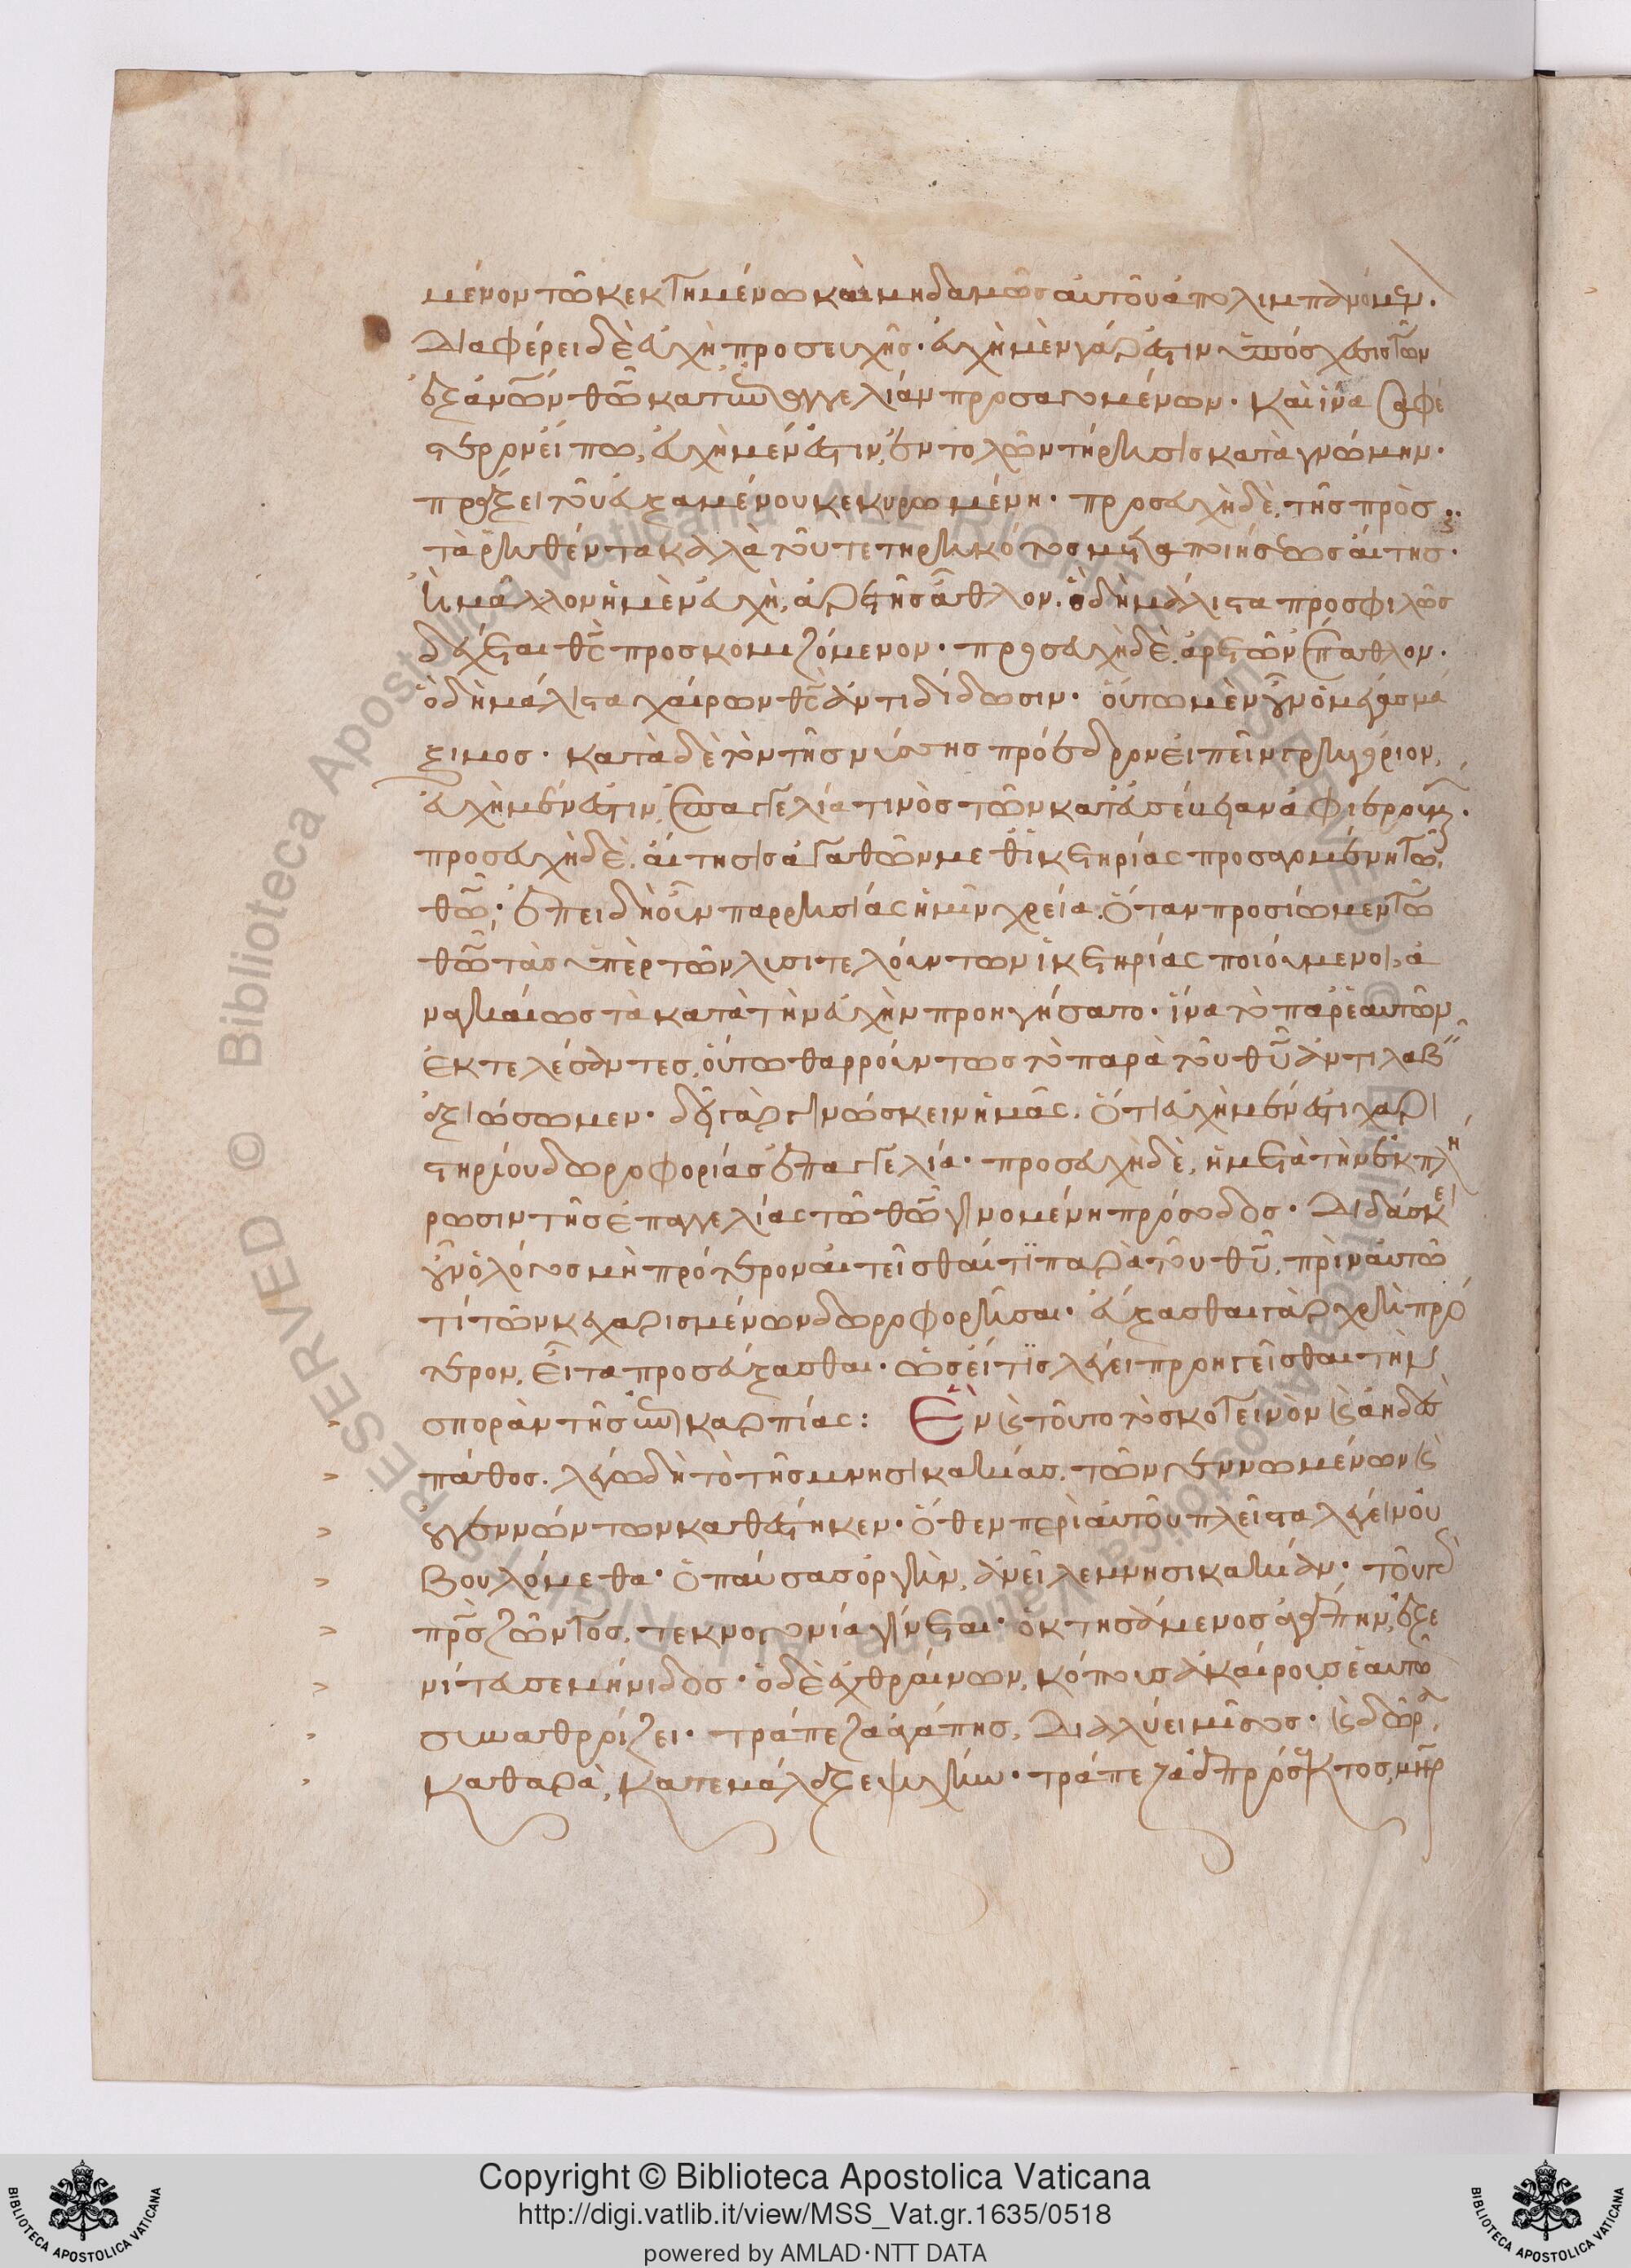 μένον τῶ κεκτημένω καὶ μηδαμῶς αὐτοῦ ἀπολιμπανόμενον.
Διαφέρει δὲ εὐχὴ προσευχῆς· εὐχὴ μὲν γάρ ἐστιν ὑπόσχεσις τῶν
ἐξ ἀνῶν θῶ κατ' ἐπαγγελίαν προσαγομένων· καὶ ἵνα σαφέ
στερον εἴπω, εὐχὴ μέν ἐστιν, ἐντολῶν τήρησις κατὰ γνώμην·
πράξει τοῦ εὐξαμένου κεκυρωμένη· προσευχὴ δὲ, τῆς πρὸς
τὰ τηρηθέντα καλὰ τοῦ τετηρηκότος μεταποιήσεως αἴτησις·
ἢ μᾶλλον ἡ μὲν εὐχὴ, ἀρετῆς ἆθλον. ὃ δὴ μάλιστα προσφιλῶς
δέχεται θς προσκομιζόμενον· προσευχὴ δὲ ἀρετῶν ἔπαθλον.
ὃ δὴ μάλιστα χαίρων θς ἀντιδίδωσιν· οὕτω μὲν οὖν ὁ μέγας μά
ξιμος· κατὰ δὲ τὸν τῆς νύσσης πρόεδρον εἰπεῖν γρηγόριον,
εὐχὴ μέν ἐστιν, ἐπαγγελία τινὸς τῶν κατ' εὐσέβειαν ἀφιερουμένων·
προσευχὴ δὲ, αἴτησις ἀγαθῶν μεθ' ἱκετηρίας προσαγομένη τῶ
θῶ· ἐπειδὴ οὖν παρρησίας ἡμῖν χρεία. ὅταν προσίωμεν τῶ
θῶ τὰς ὑπὲρ τῶν λυσιτελούντων ἱκετηρίας ποιούμενοι, ἀ
ναγκαίως τὰ κατὰ τὴν εὐχὴν προηγήσατο· ἵνα τὸ παρ' ἑαυτῶν
ἐκτελέσαντες, οὕτω θαρρούντως τὸ παρὰ τοῦ θῦ ἀντιλαβεῖν
ἀξιώσωμεν· δεῖ γὰρ γινώσκειν ἡμᾶς. ὅτι εὐχὴ μέν ἐστι χαρι
στηρίου δωροφορίας ἐπαγγελία· προσευχὴ δὲ, ἡ μετὰ τὴν ἐκπλή
ρωσιν τῆς ἐπαγγελίας τῶ θῶ γινομένη πρόσοδος· Διδάσκει
οὖν ὁ λόγος μὴ πρότερον αἰτεῖσθαί τι παρὰ τοῦ θῦ, πρὶν αὐτῶ
τί τῶν κεχαρισμένων δωροφορῆσαι· εὔξασθαι γὰρ χρὴ πρό
τερον, εἶτα προσεύξασθαι· ὡς εἴ τις λέγει προηγεῖσθαι τὴν
σπορὰν τῆς ἐπικαρπίας: Ἓν καὶ τοῦτο τὸ σκοτεινὸν καὶ ἀηδὲς
πάθος. λέγω δὴ τὸ τῆς μνησικακίας. τῶν γεννωμένων καὶ
οὐ γεννώντων καθέστηκεν· ὅθεν περὶ αὐτοῦ πλεῖστα λέγειν οὐ
βουλόμεθα· ὁ παύσας ὀργὴν, ἀνεῖλε μνησικακίαν· τοῦ γὰρ
πρς ζῶντος, τεκνογονία γίνεται· ὁ κτησάμενος ἀγάπην, ἐξε
νίτευσε μήνιδος· ὁ δὲ ἐχθραίνων, κόπους ἀκαίρους ἑαυτῶ
συναθροίζει· τράπεζα ἀγάπης, διαλύει μῖσος· καὶ δῶρα
καθαρὰ, κατεμάλαξε ψυχήν· τράπεζα ἀπρόσεκτος, μηρ
Copyright © Biblioteca Apostolica Vaticana
http://digi.vatlib.it/view/MSS_Vat.gr.1635/0518
powered by AMLAD·NTT DATA